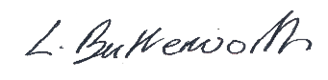 L. Butterworth